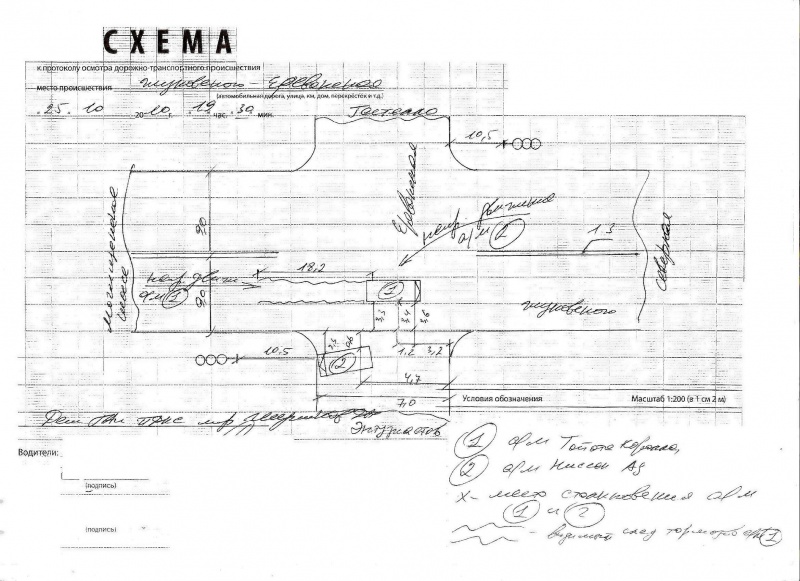 СХЕМА
к протоколу осмотра дорожно-транспортного происшествия
место происшествия Жуковского - Ереванская
(автомобильная дорога, улица, км, дом, перекрёсток и т.д.)
25. 10 2010 г. 19 час. 30 мин.
10,5
Ереванская
напр движения
а/м 2
1.3
Северная
9,0
18,2
напр движ
а/м 1
9,0
1
3,3
3,4
3,6
Жуковского
1,2
3,2
10,5
2
4,7
7,0
Условия обозначения
Масштаб 1:200 (в 1 см 2 м)
Энтузиастов
Водители:
(подпись)
(подпись)
1 а/м Тойота Королла,
2 а/м Ниссан Ad
X - место столкновения а/м
1 и 2
- видимый след тормож а/м 1